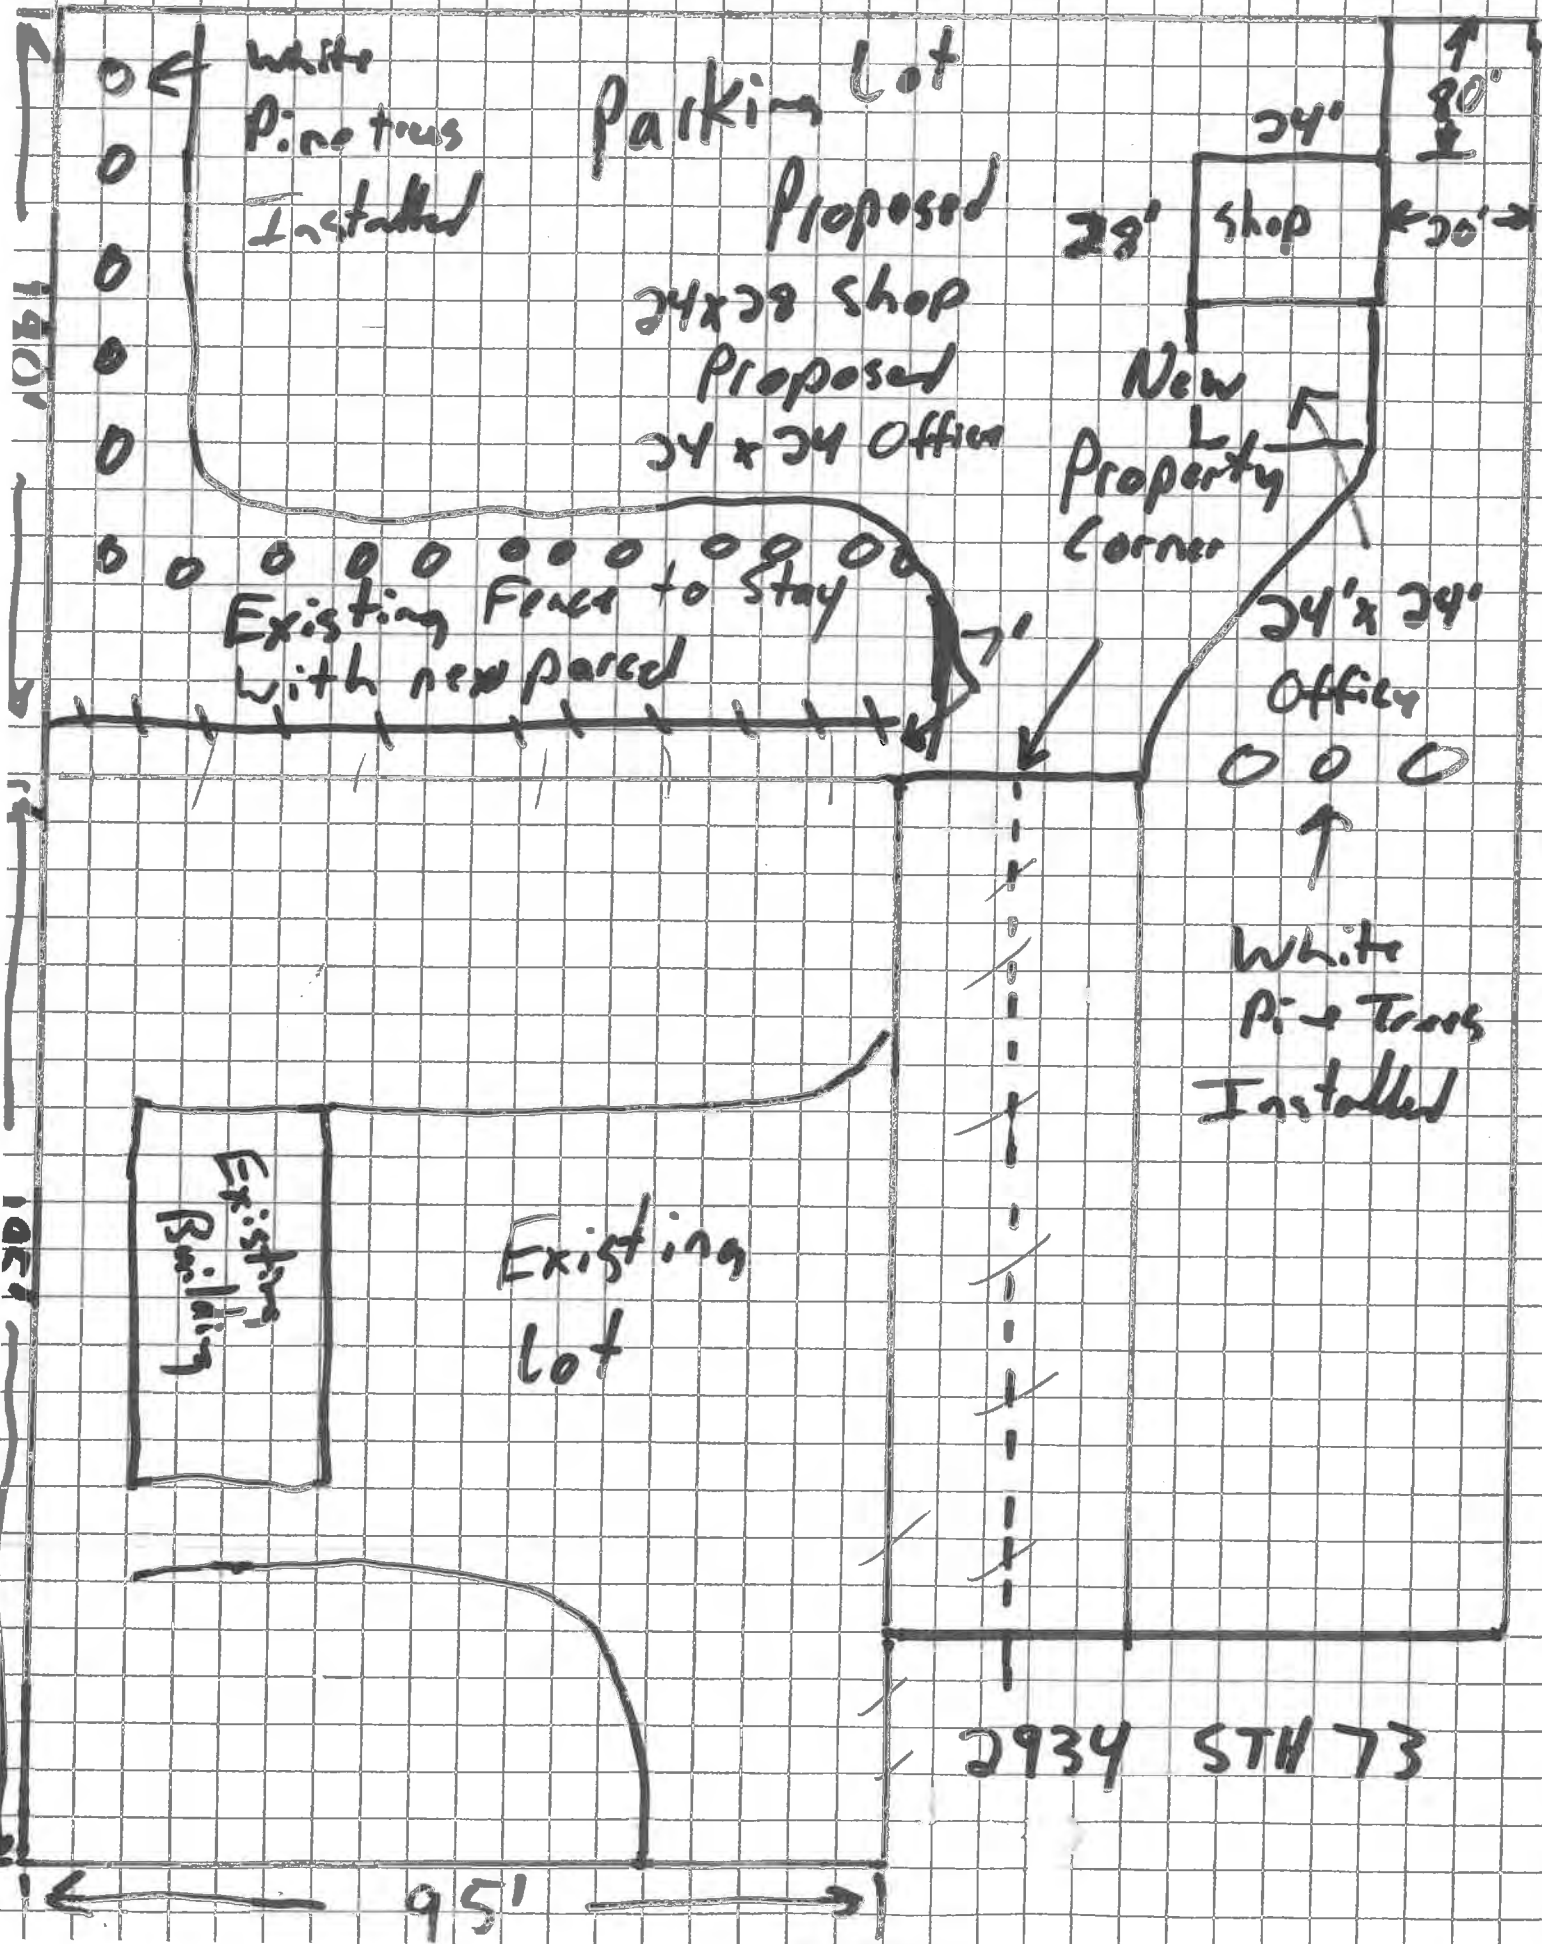 White
Pine trees
Installed
Parking Lot
Proposed
24x28 Shop
Proposed
24 x 24 Office
24'
28'
Shop
80'
20'
New
Property
Corner
190'
Existing Fence to Stay
with new parcel
7'
24'x 24'
Office
White
Pine Trees
Installed
Existing
Building
Existing
Lot
2934 STH 73
95'